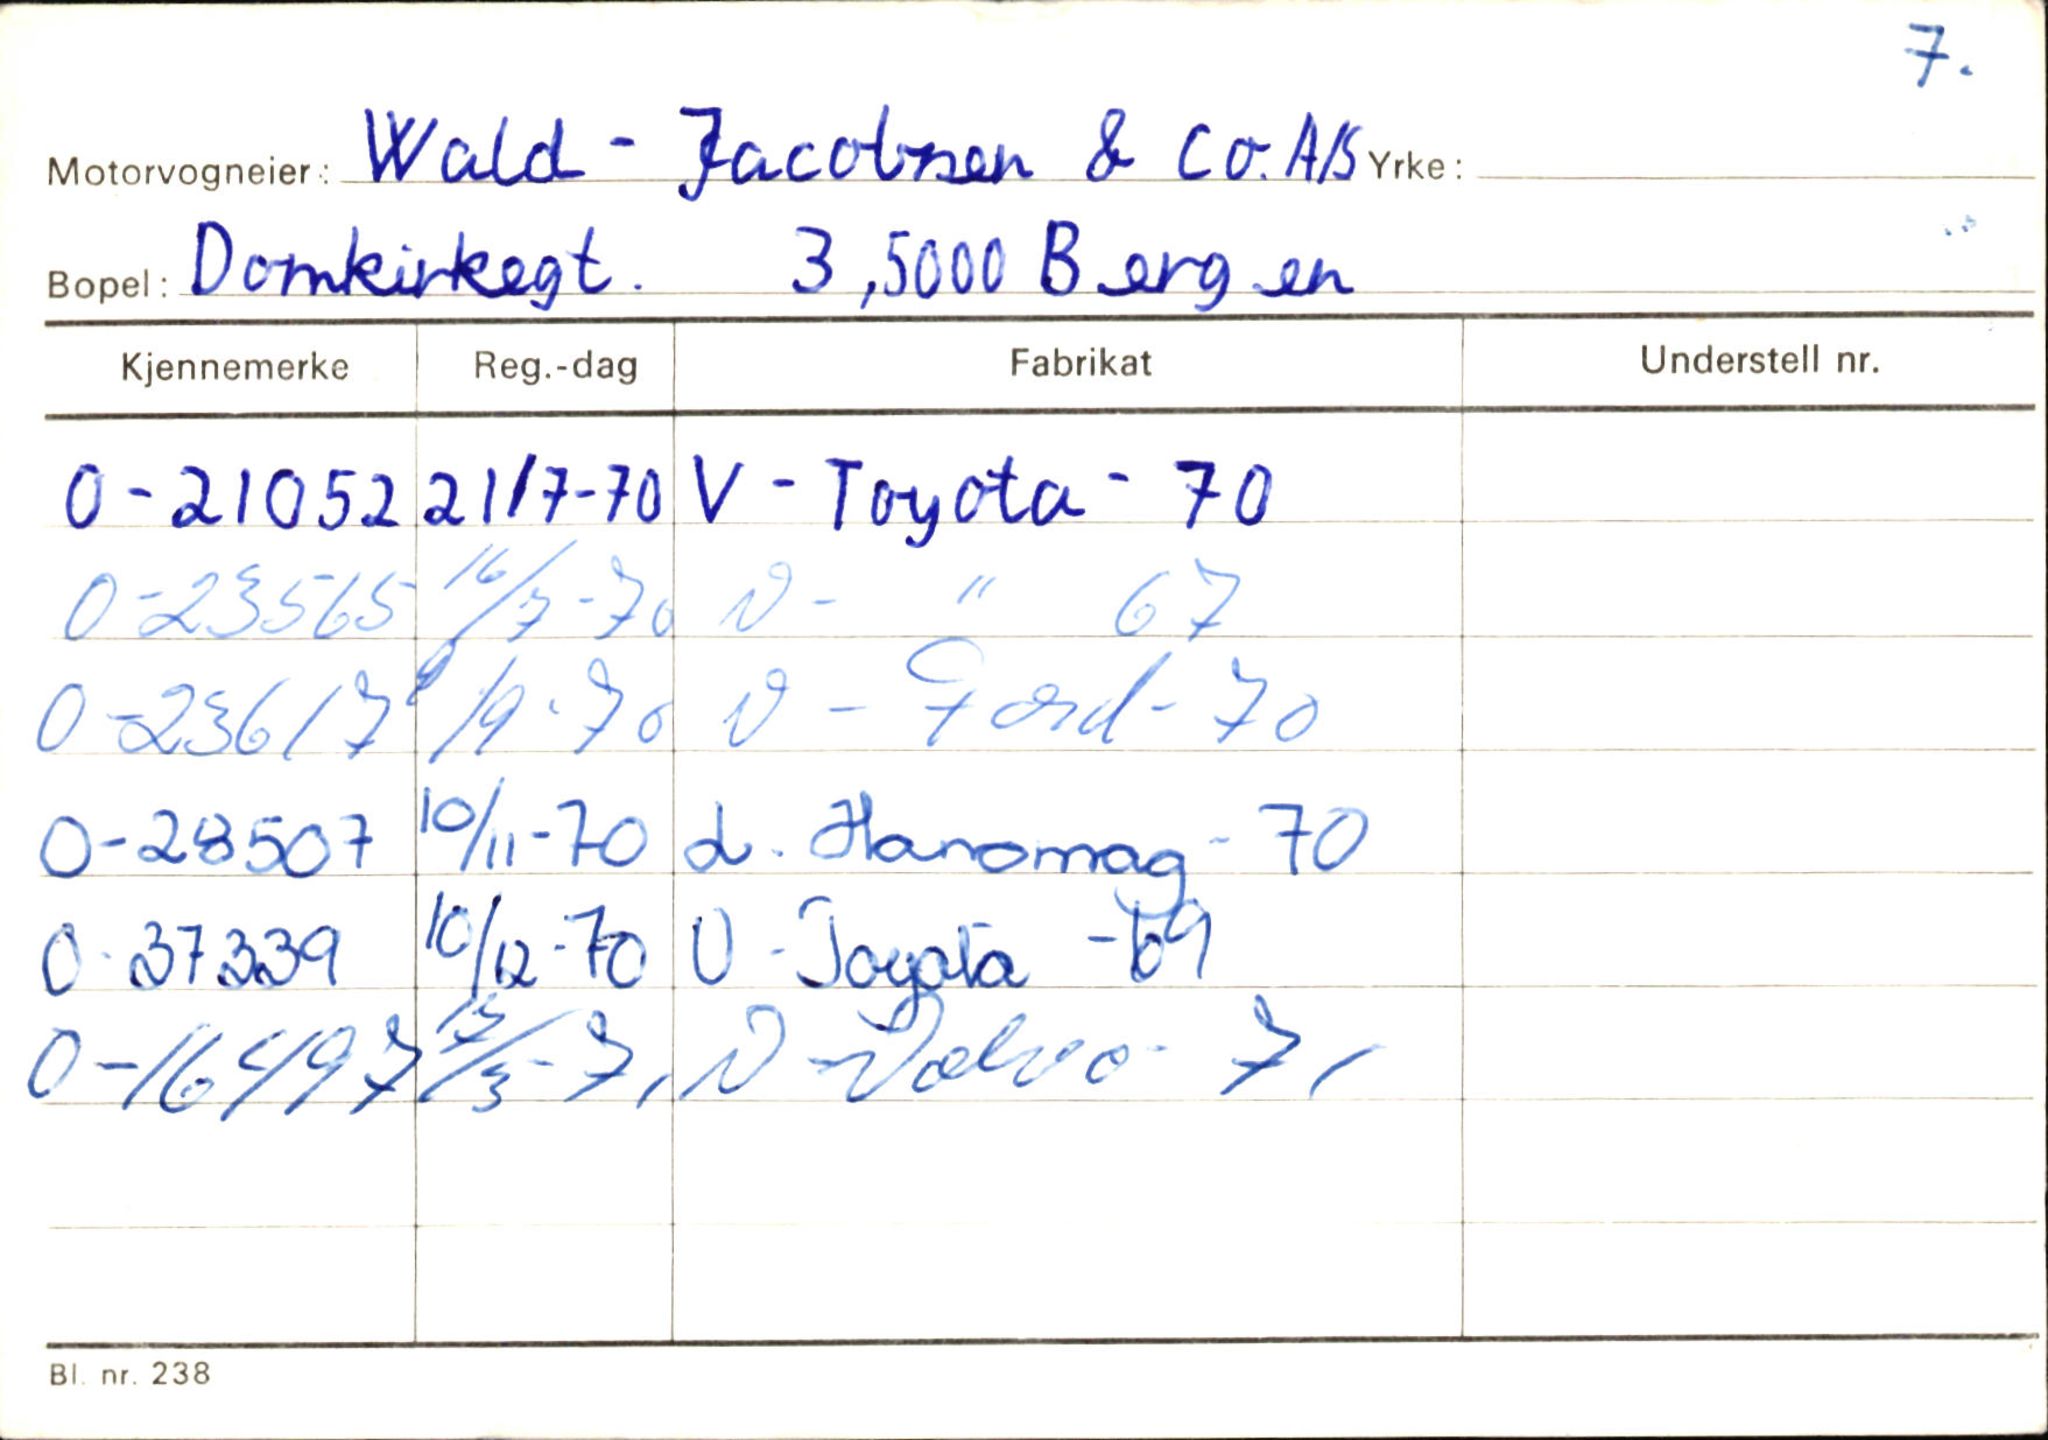 7.
Motorvogneier: Wald - Jacobsen & Co. A/S Yrke:
Bopel: Domkirkegt. 3, 5000 Bergen
Kjennemerke Reg.-dag Fabrikat Understell nr.
O-21052 21/7-70 V - Toyota - 70
O-23565 16/7-70 V - " 67
O-23617 /9-70 V - Ford - 70
O-28507 10/11-70 L. Hanomag - 70
O-37339 10/12-70 V - Toyota - 69
O-16497 /3-71 V - Volvo - 71
Bl. nr. 238